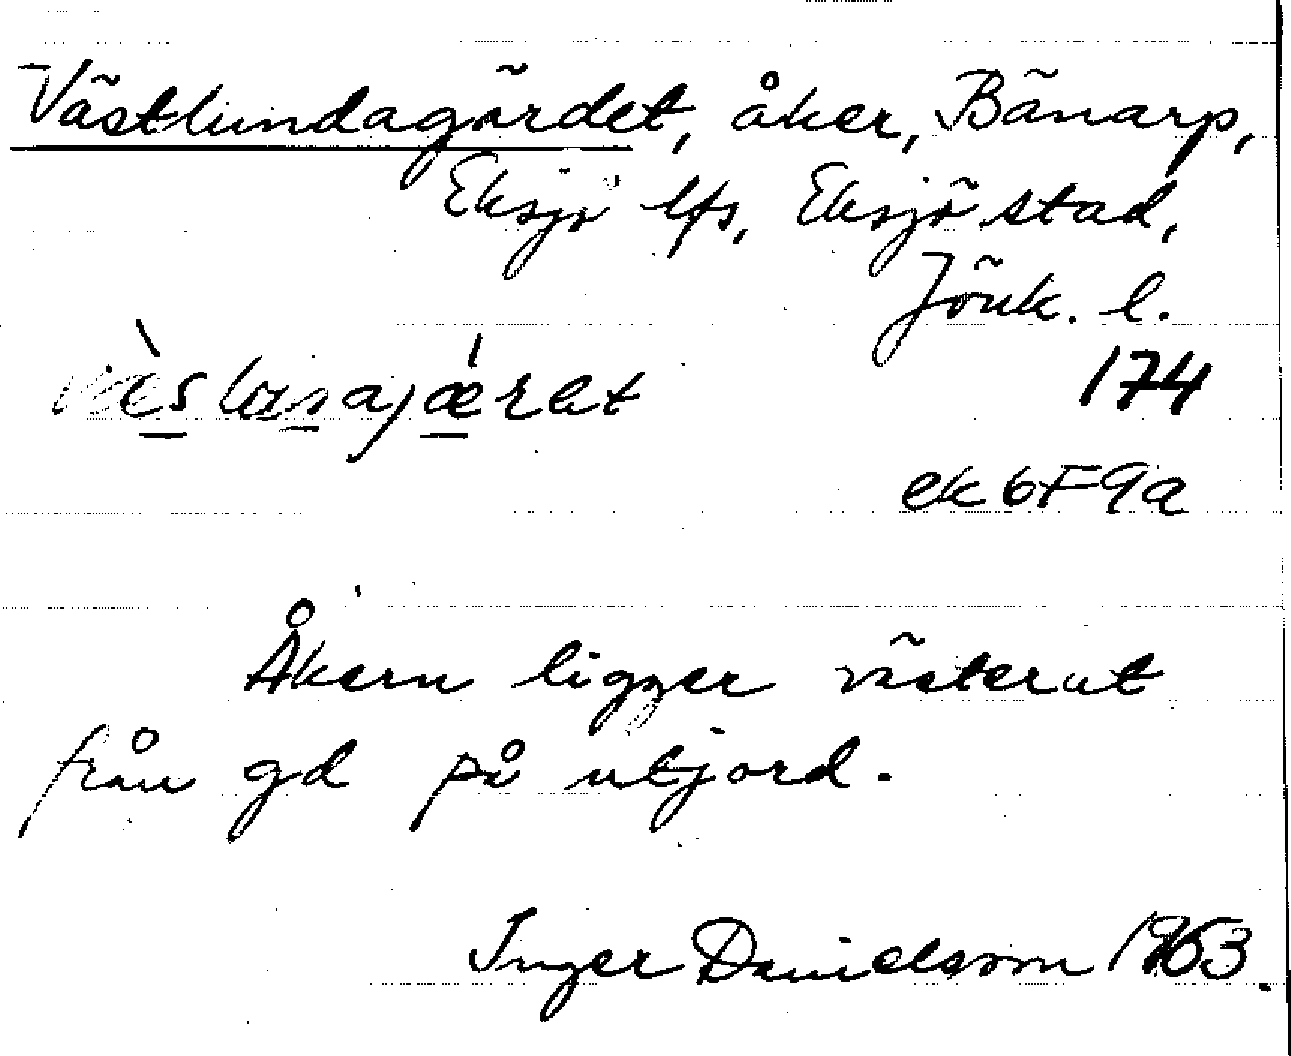 Västlundagärdet, åker, Bänarp,
Eksjö lfs, Eksjö stad,
Jönk. l.
174
ek 6F9a
Åkern ligger västerut
från gd på utjord.
Inger Danielsson 1963.